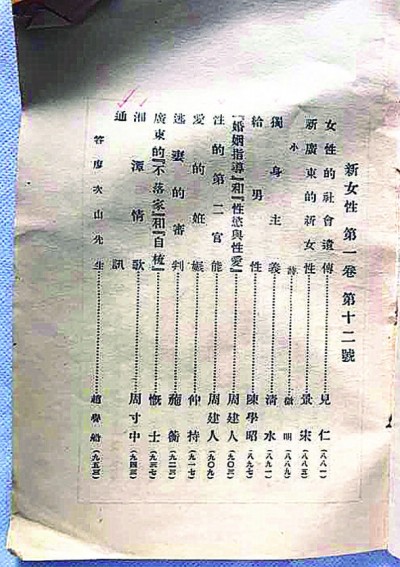 新女性 第一卷 第十二號
女性的社會遺傳……見仁(八八一)
新廣東的新女性……景宋(八八五)
小詩……微明(八八九)
獨身主義……清水(八九一)
給男性……陳學昭(八九七)
『婚姻指導』和『性慾與性愛』……周建人(九〇三)
性的第二官能……周建人(九〇九)
愛的妊娠……仲持(九一七)
逃妻的審判……施衡(九二三)
廣東的『不落家』和『自梳』……慨士(九三七)
湘潭情歌……周寸中(九四三)
通訊
答廖次山先生……趙譽船(九五三)